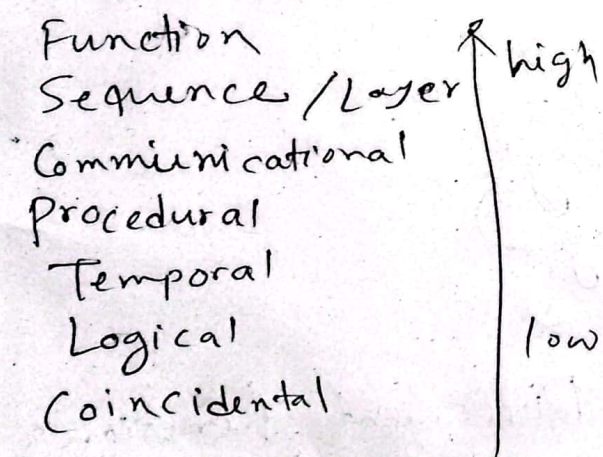 Function
high
Sequence / Layer
Communicational
Procedural
Temporal
Logical
low
Coincidental